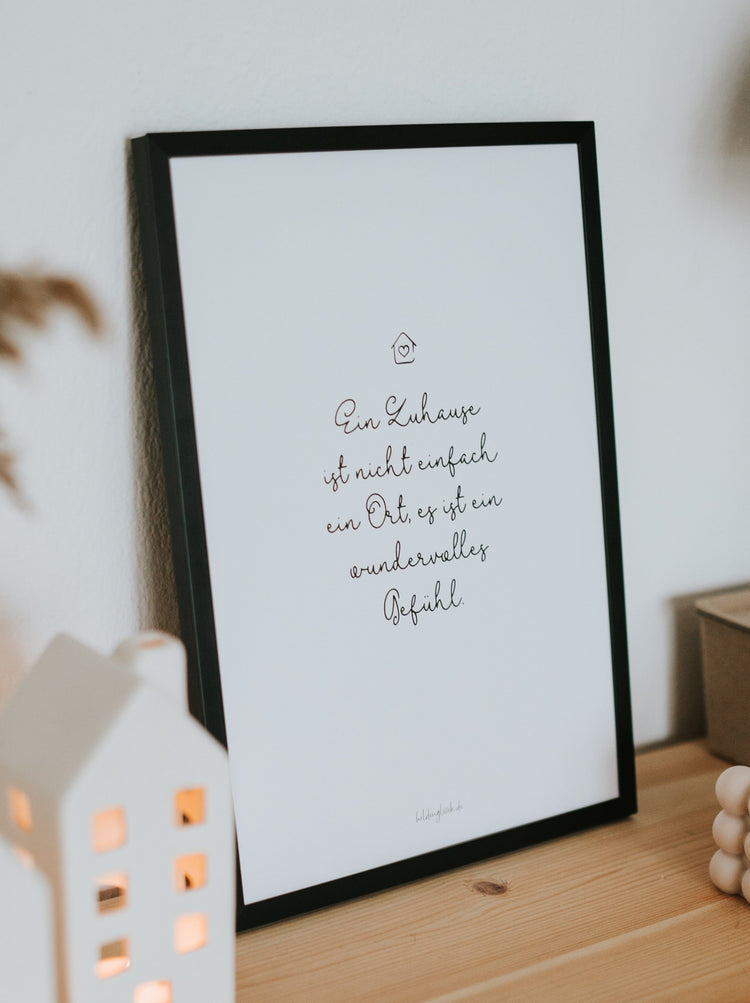 Ein Zuhause
ist nicht einfach
ein Ort, es ist ein
wundervolles
Gefühl.